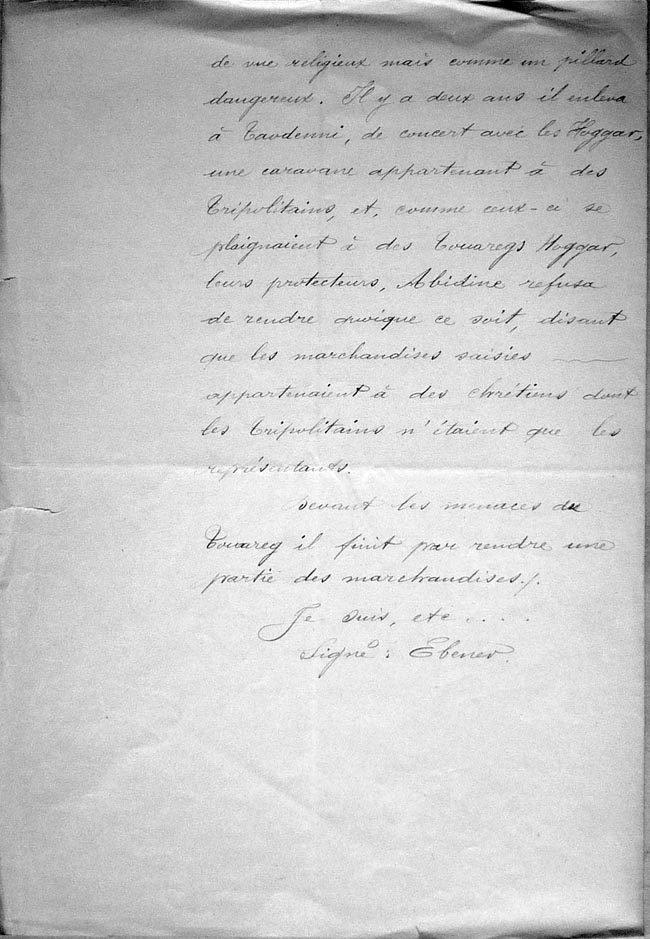 de vue religieux mais comme un pillard
dangereux. Il y a deux ans il enleva
à Taodenni, de concert avec les Hoggar,
une caravane appartenant à des
Tripolitains, et, comme ceux-ci se
plaignaient à des Touaregs Hoggar,
leurs protecteurs, Abidine refusa
de rendre quoique ce soit, disant
que les marchandises saisies
appartenaient à des chrétiens dont
les Tripolitains n'étaient que les
représentants.
Devant les menaces du
Touareg il finit par rendre une
partie des marchandises./.
Je suis, etc....
Signé : Ebener.